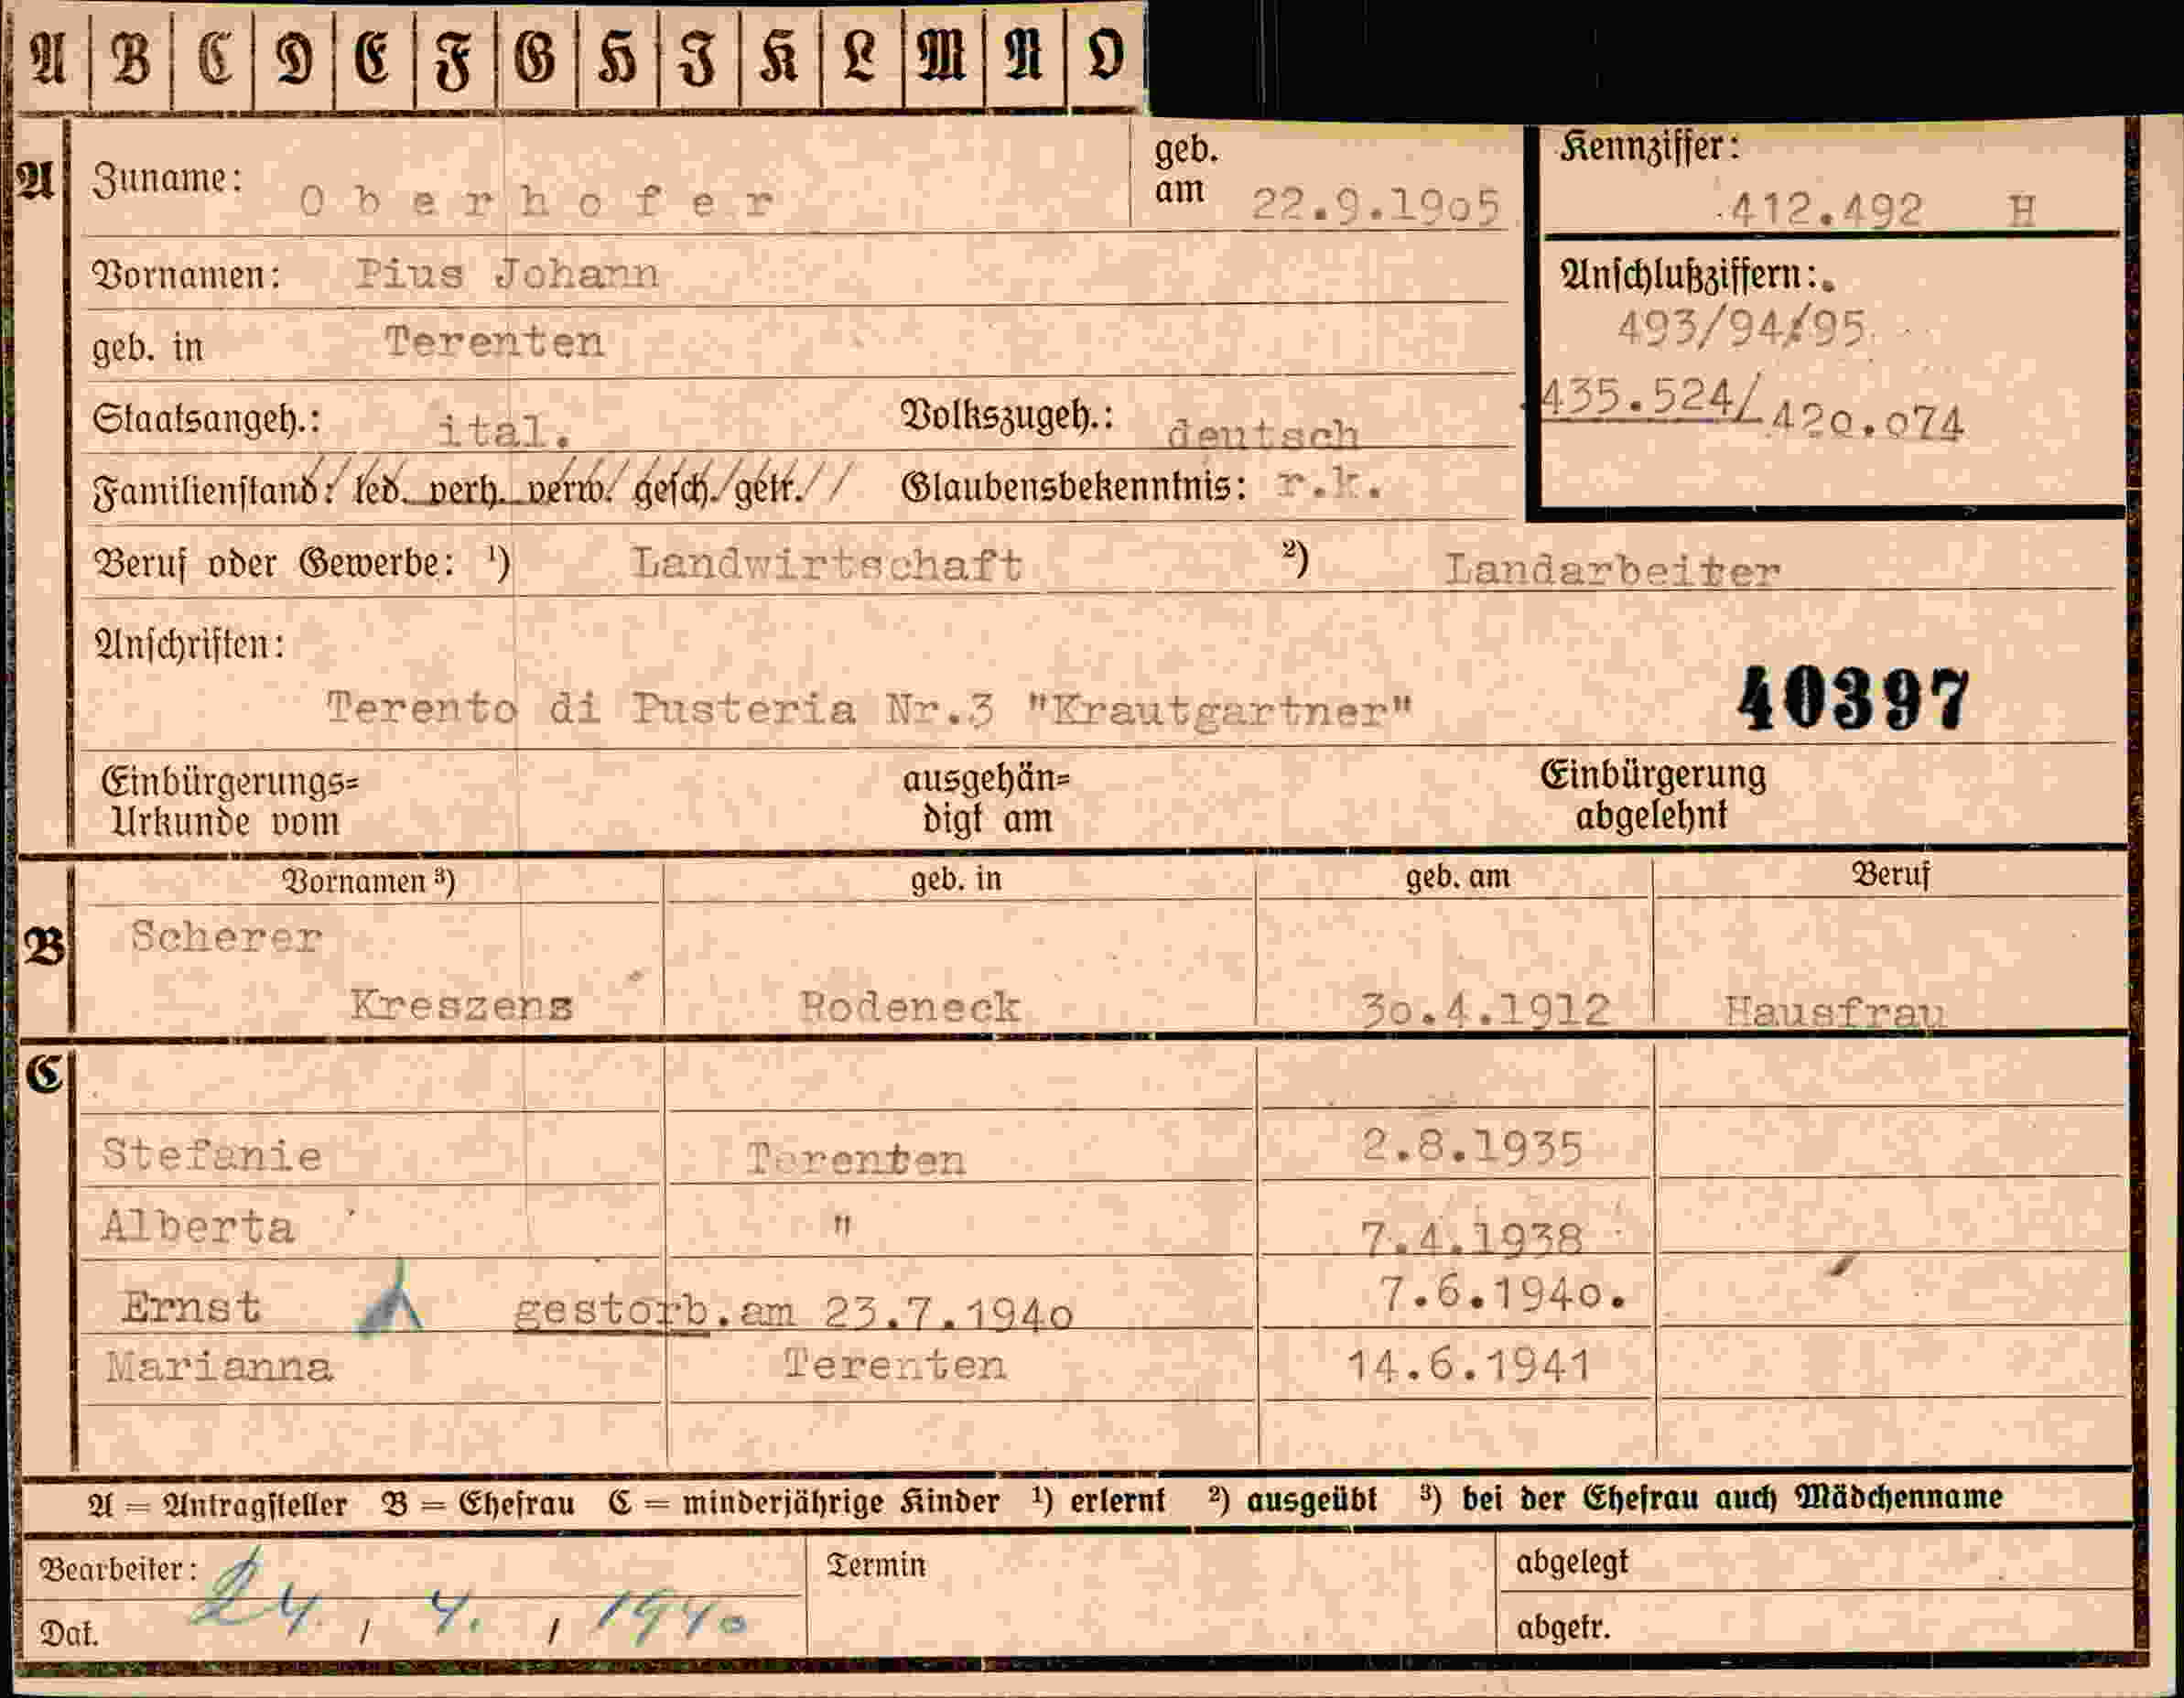 A B C D E F G H I K L M N O
A Zuname: Oberhofer geb. am 22.9.1905 Kennziffer: 412.492 H
Vornamen: Pius Johann Anschlußziffern:
geb. in Terenten 493/94/95
Staatsangeh.: ital. Volkszugeh.: deutsch 435.524/ 420.074
Familienstand: led. verh. verw. gesch. getr. Glaubensbekenntnis: r.k.
Beruf oder Gewerbe: ¹) Landwirtschaft ²) Landarbeiter
Anschriften:
Terento di Pusteria Nr.3 "Krautgartner" 40397
Einbürgerungs= ausgehän= Einbürgerung
Urkunde vom digt am abgelehnt
Vornamen ³) geb. in geb. am Beruf
B Scherer
Kreszens Rodeneck 30.4.1912 Hausfrau
C
Stefanie Terenten 2.8.1935
Alberta " 7.4.1938
Ernst gestorb.am 23.7.1940 7.6.1940.
Marianna Terenten 14.6.1941
A = Antragsteller B = Ehefrau C = minderjährige Kinder ¹) erlernt ²) ausgeübt ³) bei der Ehefrau auch Mädchenname
Bearbeiter: Termin abgelegt
Dat. 24. / 4. / 1940 abgetr.